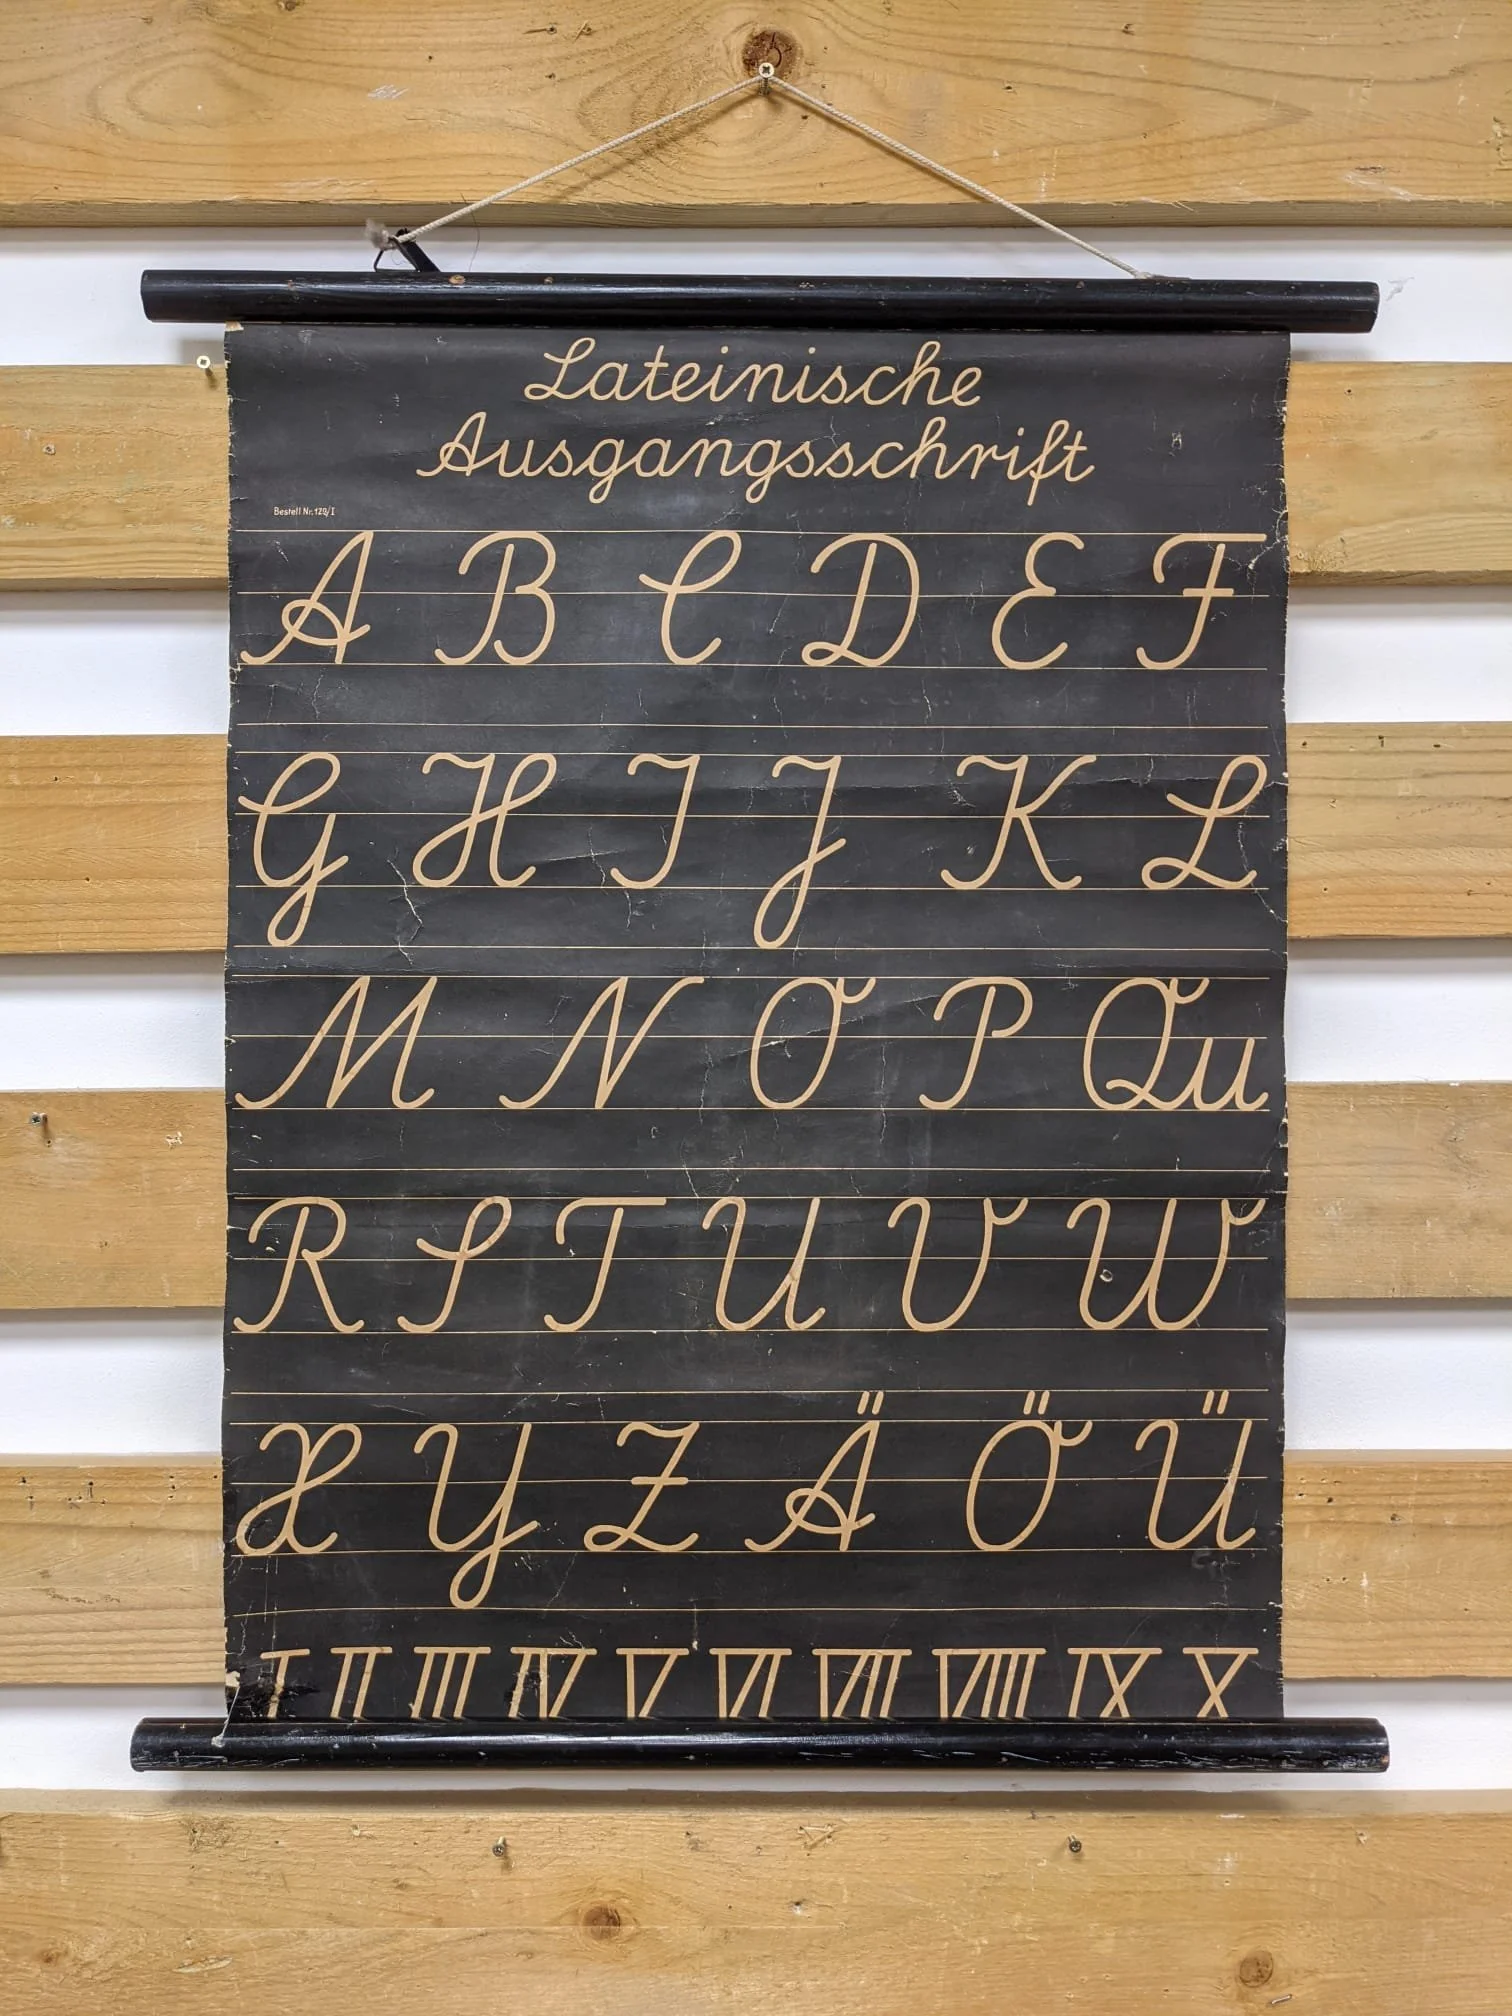 Lateinische
Ausgangsschrift
Bestell Nr. 129/I
A B C D E F
G H I J K L
M N O P Qu
R S T U V W
X Y Z Ä Ö Ü
I II III IV V VI VII VIII IX X